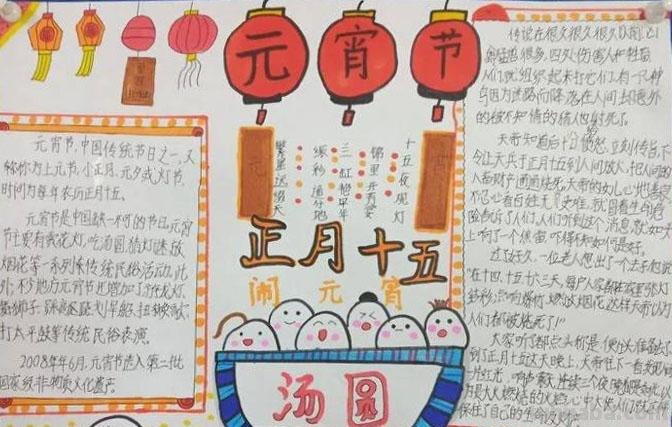 元宵节
元宵节,中国传统节日之一,又
称为上元节,小正月、元夕或灯节,
时间为每年农历正月十五。
元宵节是中国 的节日,元宵
节主要有赏花灯,吃汤圆,猜灯谜,放
烟花等一系列传统民俗活动。此
外,不少地方元宵节还增加了游龙灯,
舞狮子,踩高跷,划旱船,扭秧歌,
打太平鼓等传统民俗表演。
2008年6月,元宵节选入第二批
国家级非物质文化遗产。
元
宵
十五夜观灯
正月十五
闹元宵
汤圆
传说在很久很久很久以前,
很多,四处伤害人和牲畜
人们就组织起来打它们,有一只神
鸟因为迷路而降落在人间,却意外
的被不知情的猎人给射死了。
天帝知道后十分愤怒,立刻传旨下
令让天兵于正月十五到人间放火,把人间的
人畜财产通通烧死。天帝的女儿心地善
不忍心看百姓无 受难,就冒着生命危
险 告诉了人们,人们听到这个消息,就如头
上响了一个焦雷,吓得不知如何是好。
过了好久,一位老人想出个法子,他说
“在十四、十五、十六三天,每户人家都在家里张灯
结彩,点响爆竹,燃放烟花,这样天帝以为
人们都被烧死了!”
大家听了都点头称是,便分头准备去了
到了正月十五这天晚上,天帝往下一看,发现
片红光,响声震天,连续三个夜
为是大火燃烧的火焰,心中大快,人们就
保住了自己的生命及财产。